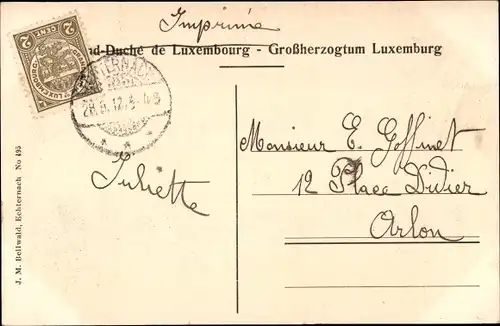 Imprimé
nd-Duché de Luxembourg - Großherzogtum Luxemburg
2 CENT. 2
28.5.12. 4-5
Monsieur E. Goffinet
12 Place Didier
Arlon
Juliette
J. M. Bellwald, Echternach No 495